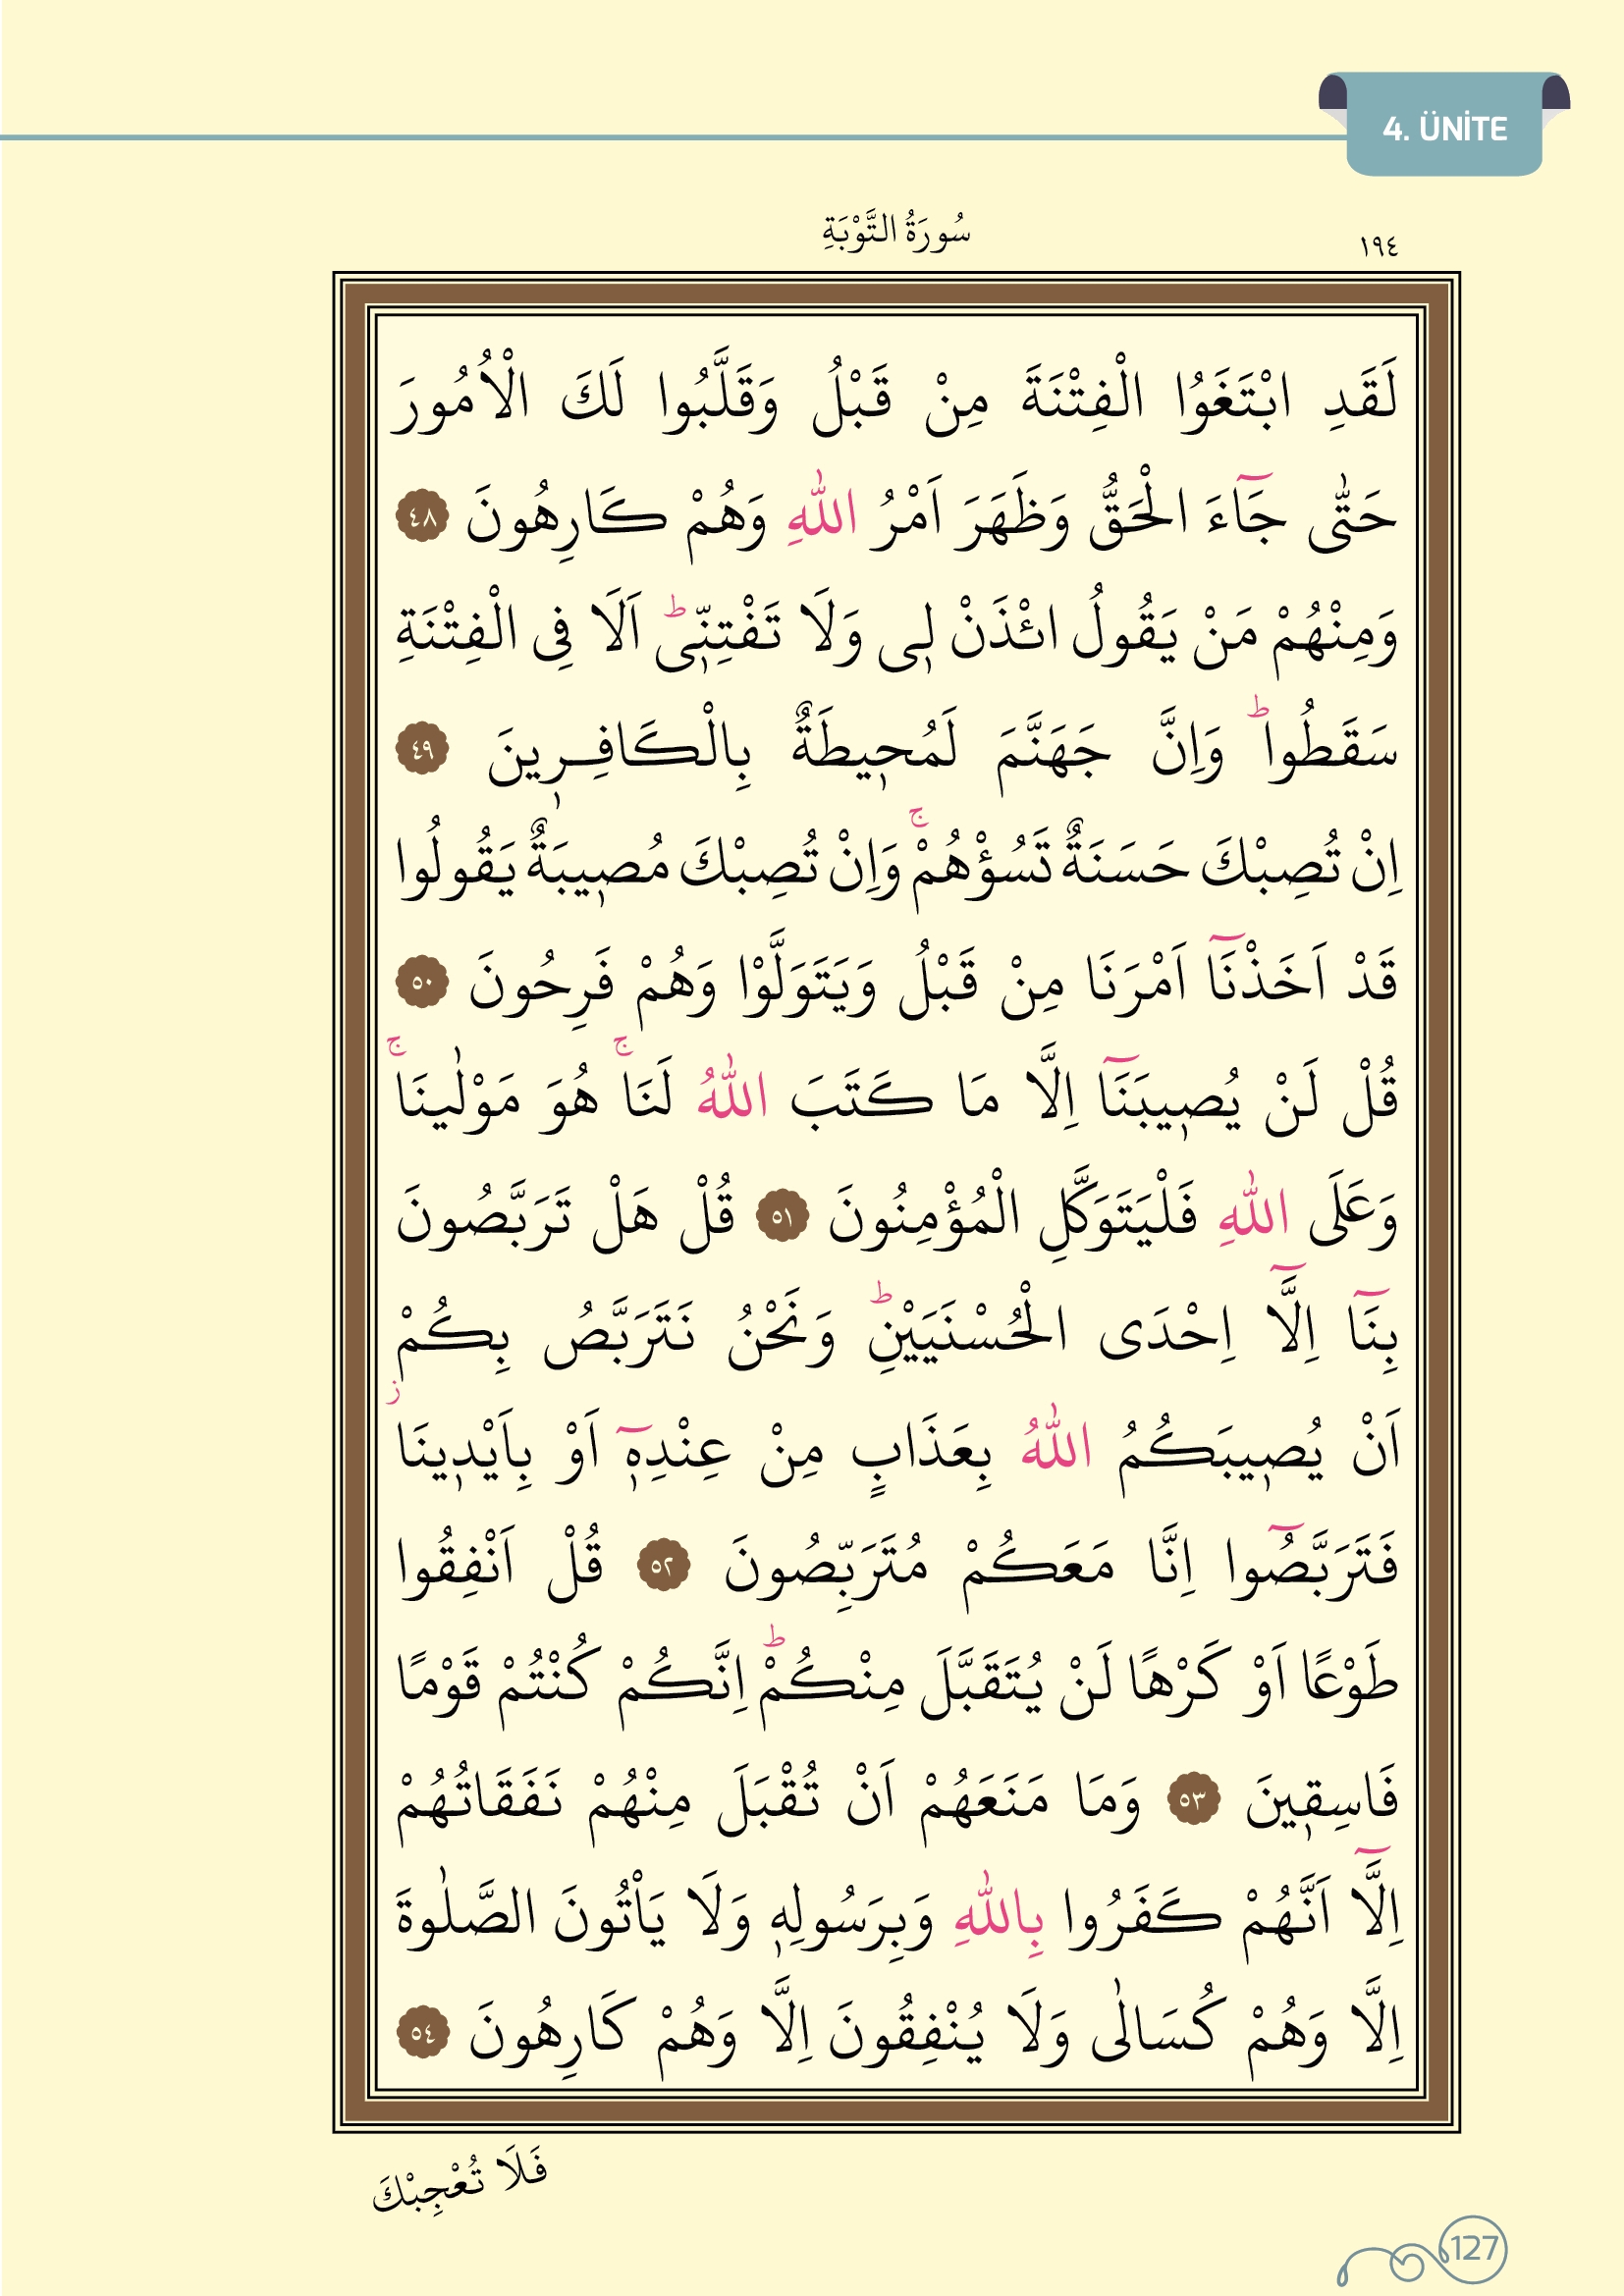 4. ÜNİTE
سُورَةُ التَّوْبَةِ
١٩٤
لَقَدِ ابْتَغَوُا الْفِتْنَةَ مِنْ قَبْلُ وَقَلَّبُوا لَكَ الْاُمُورَ
حَتّٰى جَٓاءَ الْحَقُّ وَظَهَرَ اَمْرُ اللّٰهِ وَهُمْ كَارِهُونَ ٤٨
وَمِنْهُمْ مَنْ يَقُولُ ائْذَنْ ل۪ى وَلَا تَفْتِنّ۪ىۜ اَلَا فِى الْفِتْنَةِ
سَقَطُواۜ وَاِنَّ جَهَنَّمَ لَمُح۪يطَةٌ بِالْكَافِر۪ينَ ٤٩
اِنْ تُصِبْكَ حَسَنَةٌ تَسُؤْهُمْۚ وَاِنْ تُصِبْكَ مُص۪يبَةٌ يَقُولُوا
قَدْ اَخَذْنَٓا اَمْرَنَا مِنْ قَبْلُ وَيَتَوَلَّوْا وَهُمْ فَرِحُونَ ٥٠
قُلْ لَنْ يُص۪يبَنَٓا اِلَّا مَا كَتَبَ اللّٰهُ لَنَاۚ هُوَ مَوْلٰينَاۚ
وَعَلَى اللّٰهِ فَلْيَتَوَكَّلِ الْمُؤْمِنُونَ ٥١ قُلْ هَلْ تَرَبَّصُونَ
بِنَٓا اِلَّٓا اِحْدَى الْحُسْنَيَيْنِۜ وَنَحْنُ نَتَرَبَّصُ بِكُمْ
اَنْ يُص۪يبَكُمُ اللّٰهُ بِعَذَابٍ مِنْ عِنْدِه۪ٓ اَوْ بِاَيْد۪ينَاۘ
فَتَرَبَّصُٓوا اِنَّا مَعَكُمْ مُتَرَبِّصُونَ ٥٢ قُلْ اَنْفِقُوا
طَوْعًا اَوْ كَرْهًا لَنْ يُتَقَبَّلَ مِنْكُمْۜ اِنَّكُمْ كُنْتُمْ قَوْمًا
فَاسِق۪ينَ ٥٣ وَمَا مَنَعَهُمْ اَنْ تُقْبَلَ مِنْهُمْ نَفَقَاتُهُمْ
اِلَّٓا اَنَّهُمْ كَفَرُوا بِاللّٰهِ وَبِرَسُولِه۪ وَلَا يَاْتُونَ الصَّلٰوةَ
اِلَّا وَهُمْ كُسَالٰى وَلَا يُنْفِقُونَ اِلَّا وَهُمْ كَارِهُونَ ٥٤
فَلَا تُعْجِبْكَ
127